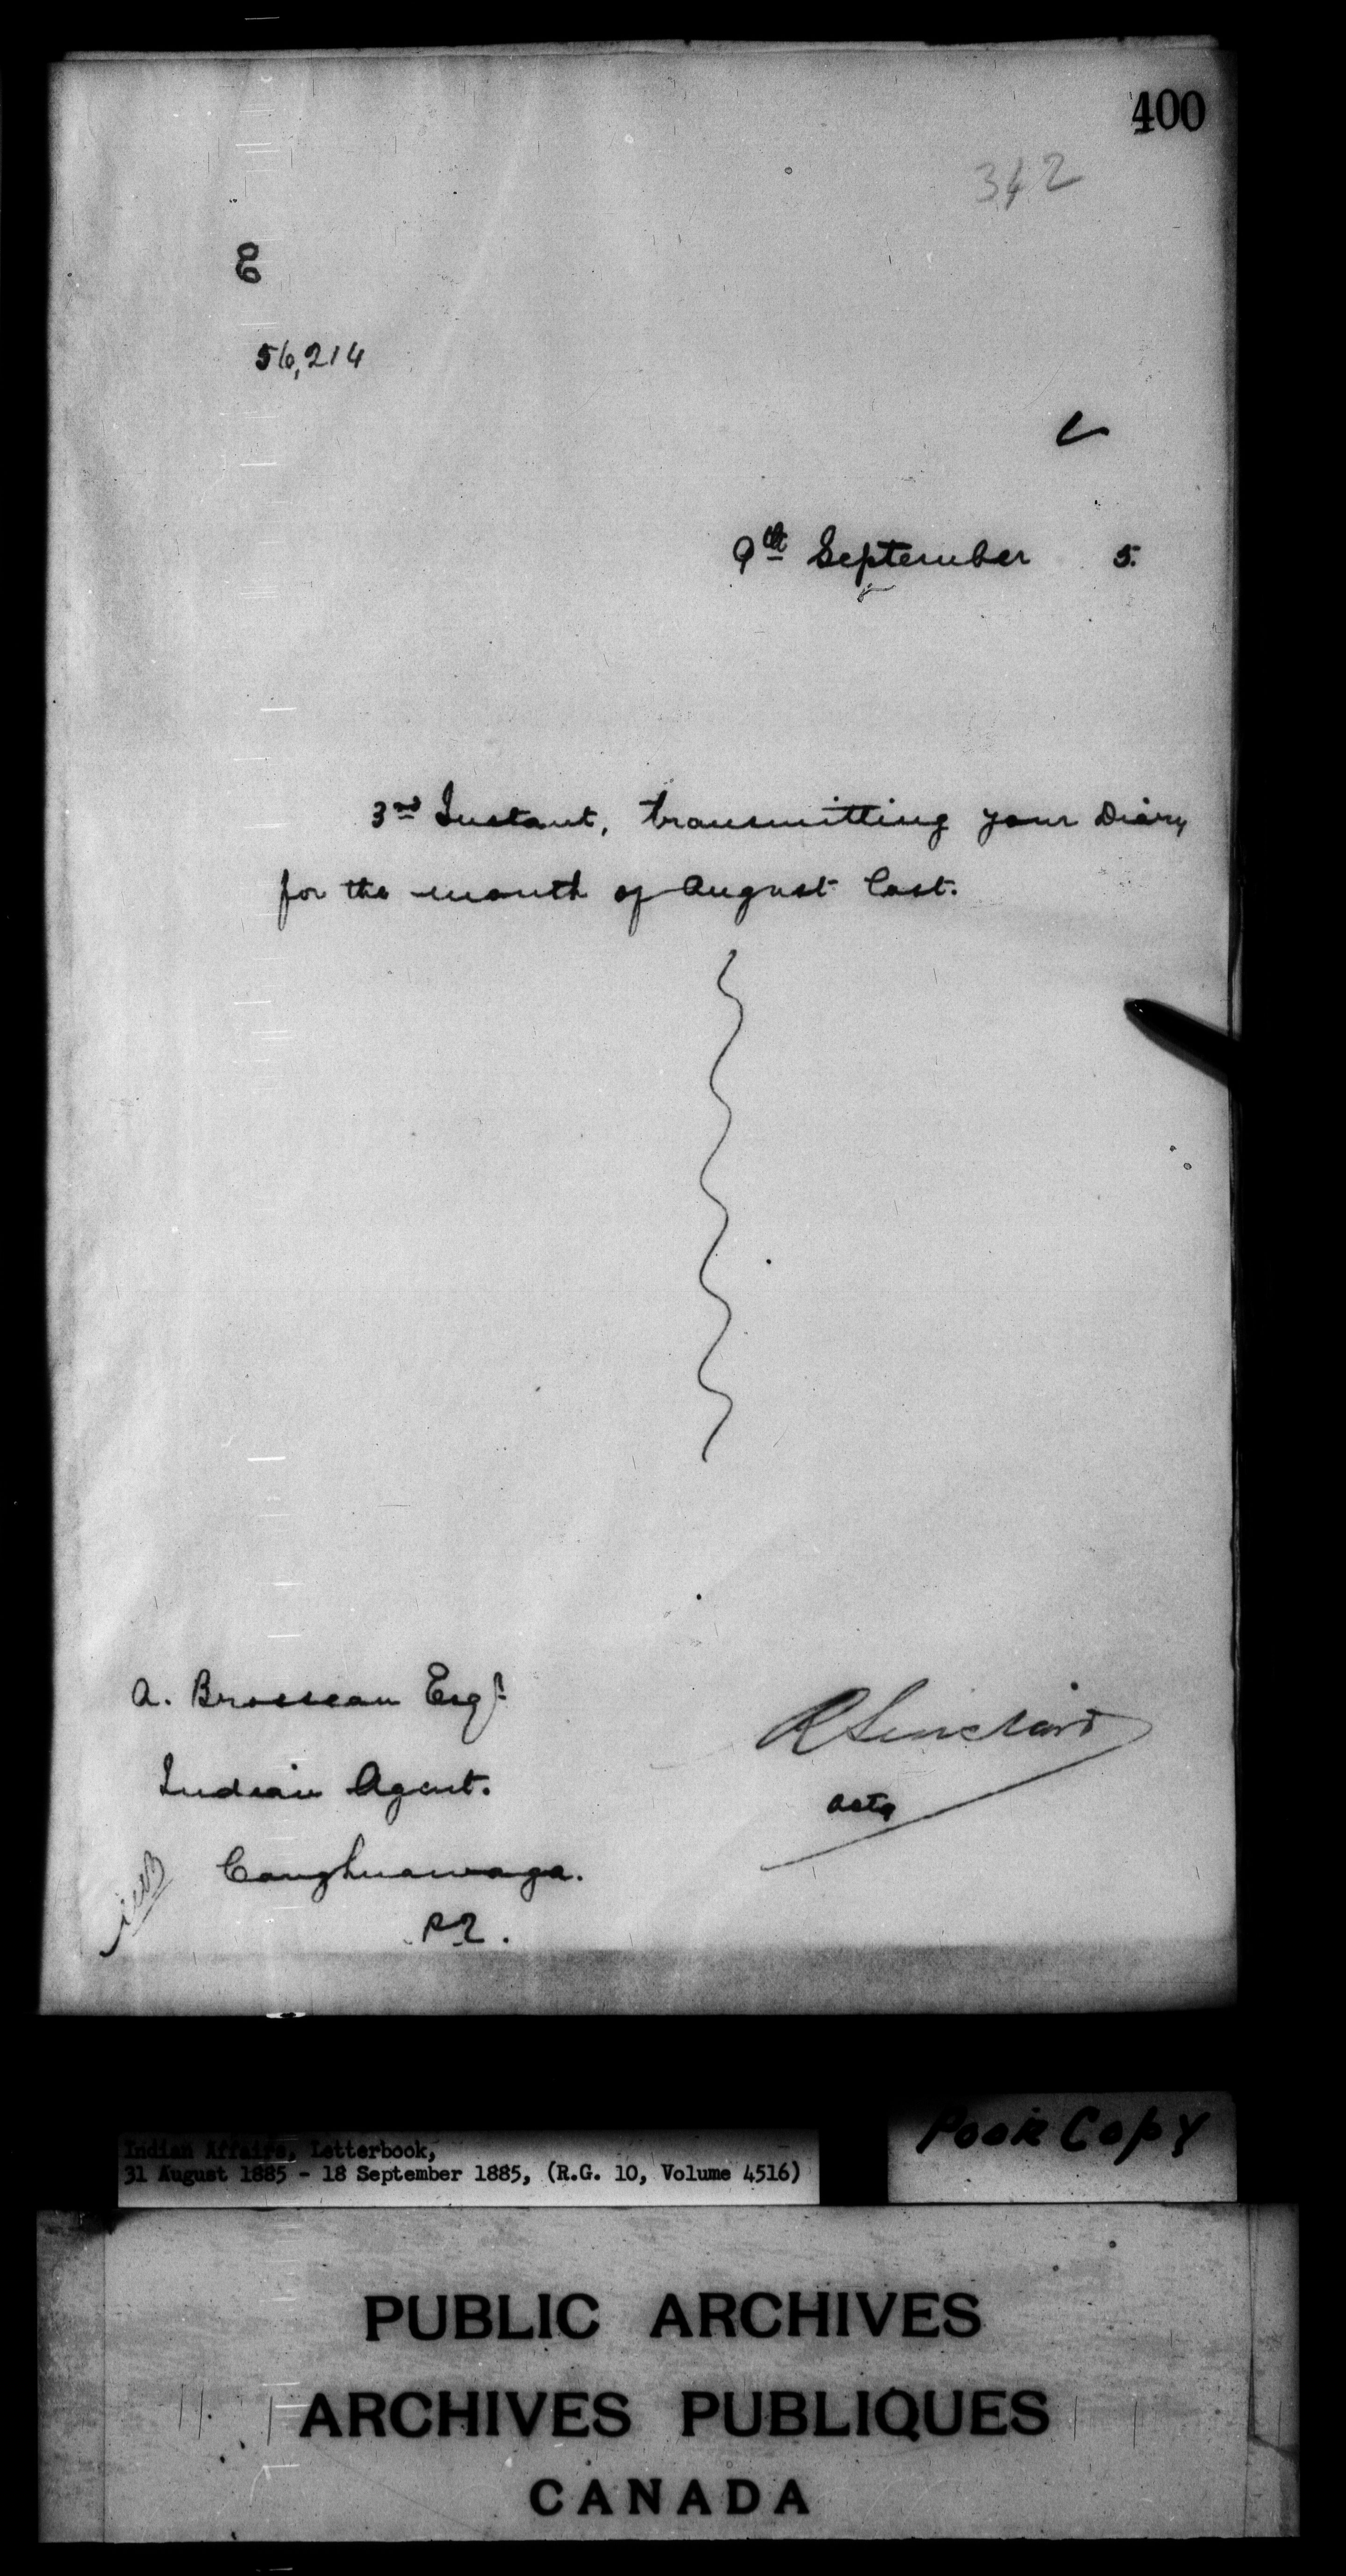 400
342
E
56,214
9th September 5.
3rd Instant, transmitting your Diary
for the month of August last.
A. Brosseau Esqr.
RSinclair
Indian Agent.
actg
Caughnawaga.
P.Q.
Indian Affairs, Letterbook,
31 August 1885 - 18 September 1885, (R.G. 10, Volume 4516)
Poor Copy
PUBLIC ARCHIVES
ARCHIVES PUBLIQUES
CANADA